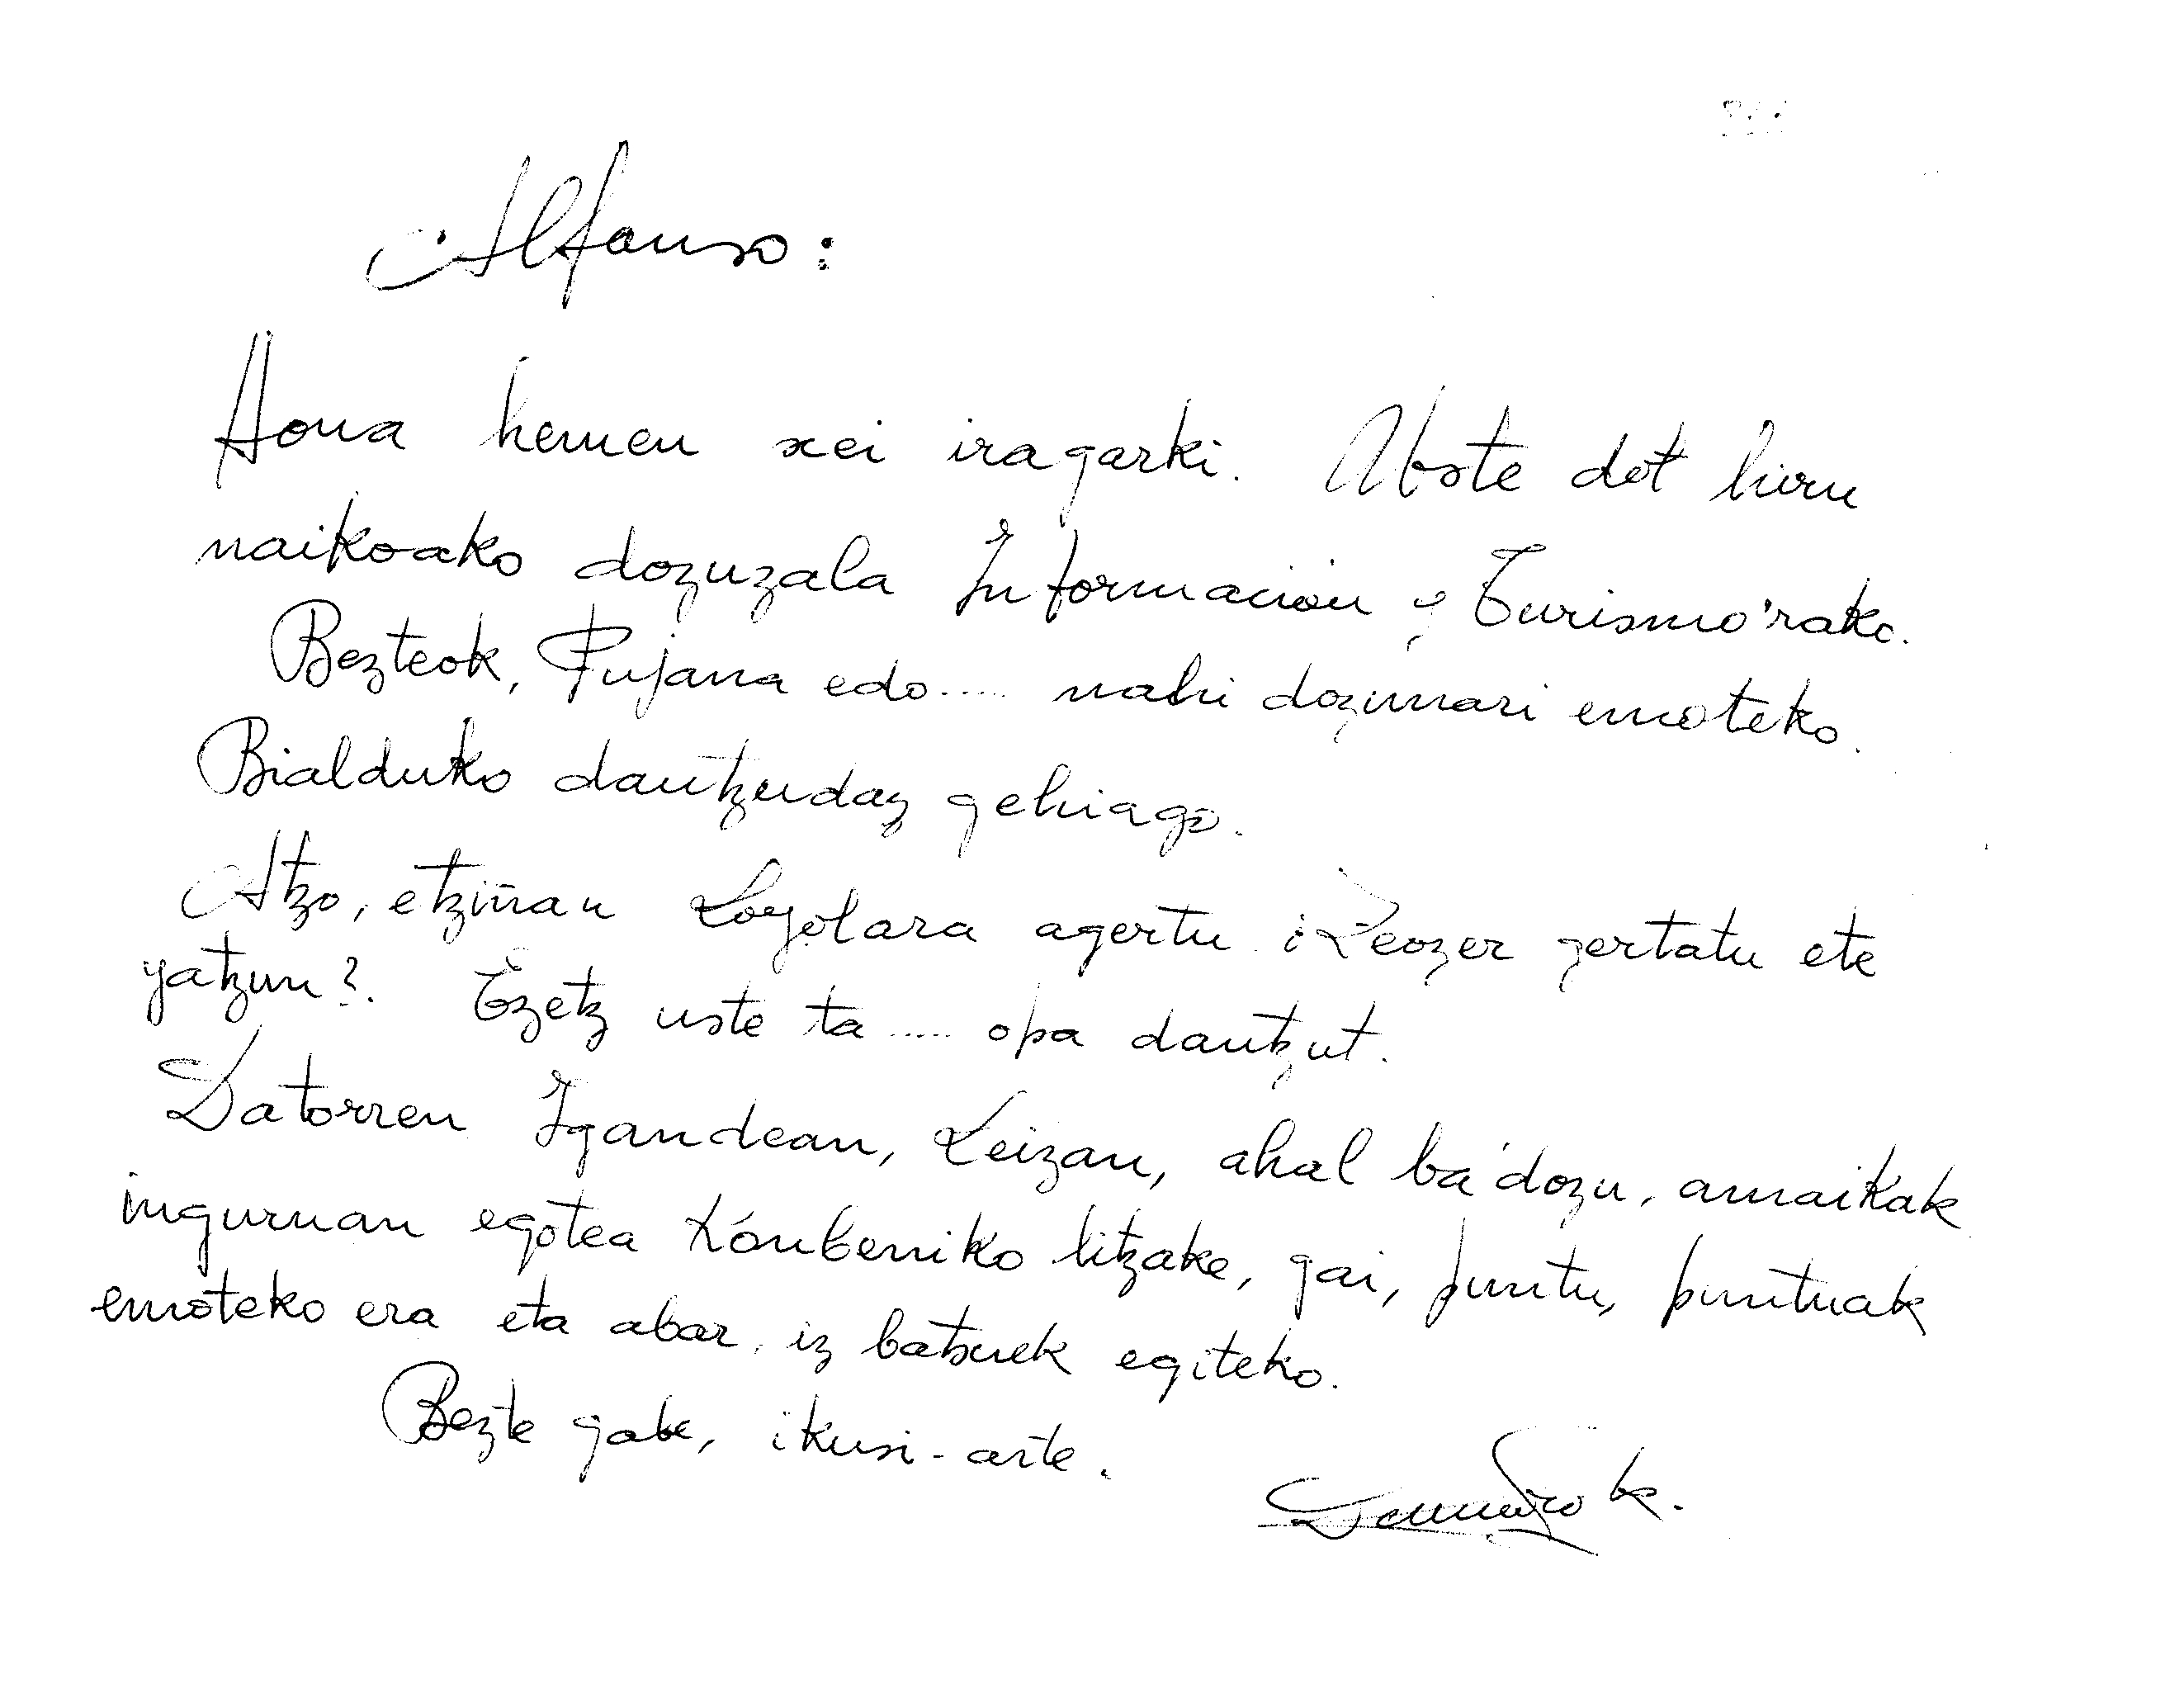 Alfonso:
Hona hemen sei iragarki. Uste dot hiru
naikoako dozuzala Información y Turismo'rako.
Bezteok, Pujana edo..... nahi dozunari emoteko.
Bialduko dautzudaz gehiago.
Atzo, etziñan Loyolara agertu ¿Zeozer gertatu ete
yatzun?. Ezetz uste ta ..... opa dautzut.
Datorren Igandean, Leizan, ahal ba'dozu, amaikak
inguruan egotea konbeniko litzake, gai, puntu, puntuak
emoteko era eta abar, iz batzuek egiteko.
Bezte gabe, ikusi-arte.